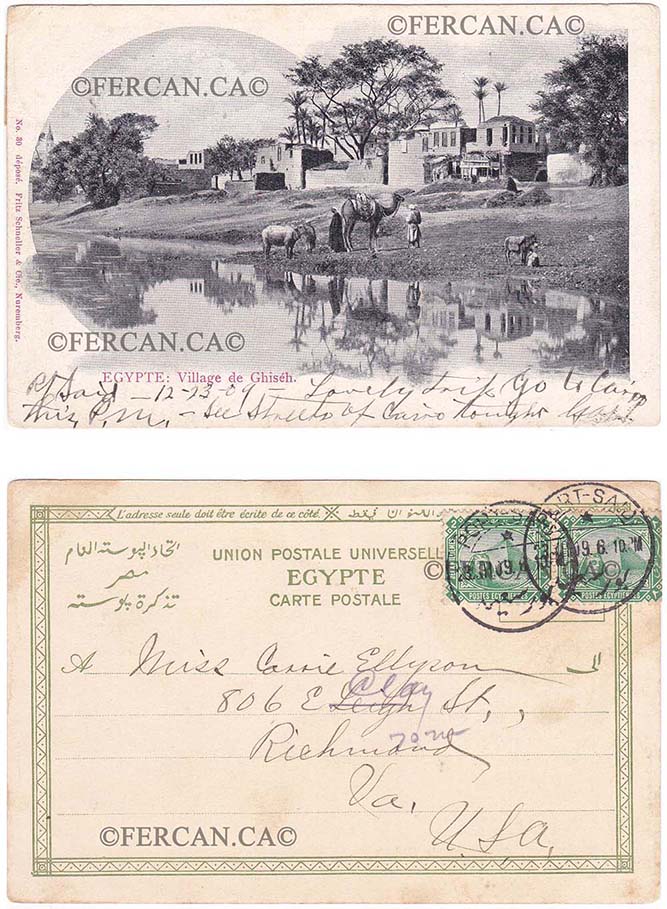 ©FERCAN.CA©
©FERCAN.CA©
No. 30 déposé. Fritz Schneller & Cie., Nuremberg.
©FERCAN.CA©
EGYPTE: Village de Ghiséh.
Pt Said - 12-23-09 - Lovely trip Go to Cairo
this P.M. - See Streets of Cairo tonight
L'adresse seule doit être écrite de ce côté.
اتحاد البوسته العام
مصر
تذكرة بوسته
UNION POSTALE UNIVERSELLE
EGYPTE
CARTE POSTALE
PORT-SAID
POSTES EGYPTIENNES
POSTES EGYPTIENNES
A Miss Carrie Ellyson
806 E Leigh St,
Clay
Richmond
Va.
USA
©FERCAN.CA©